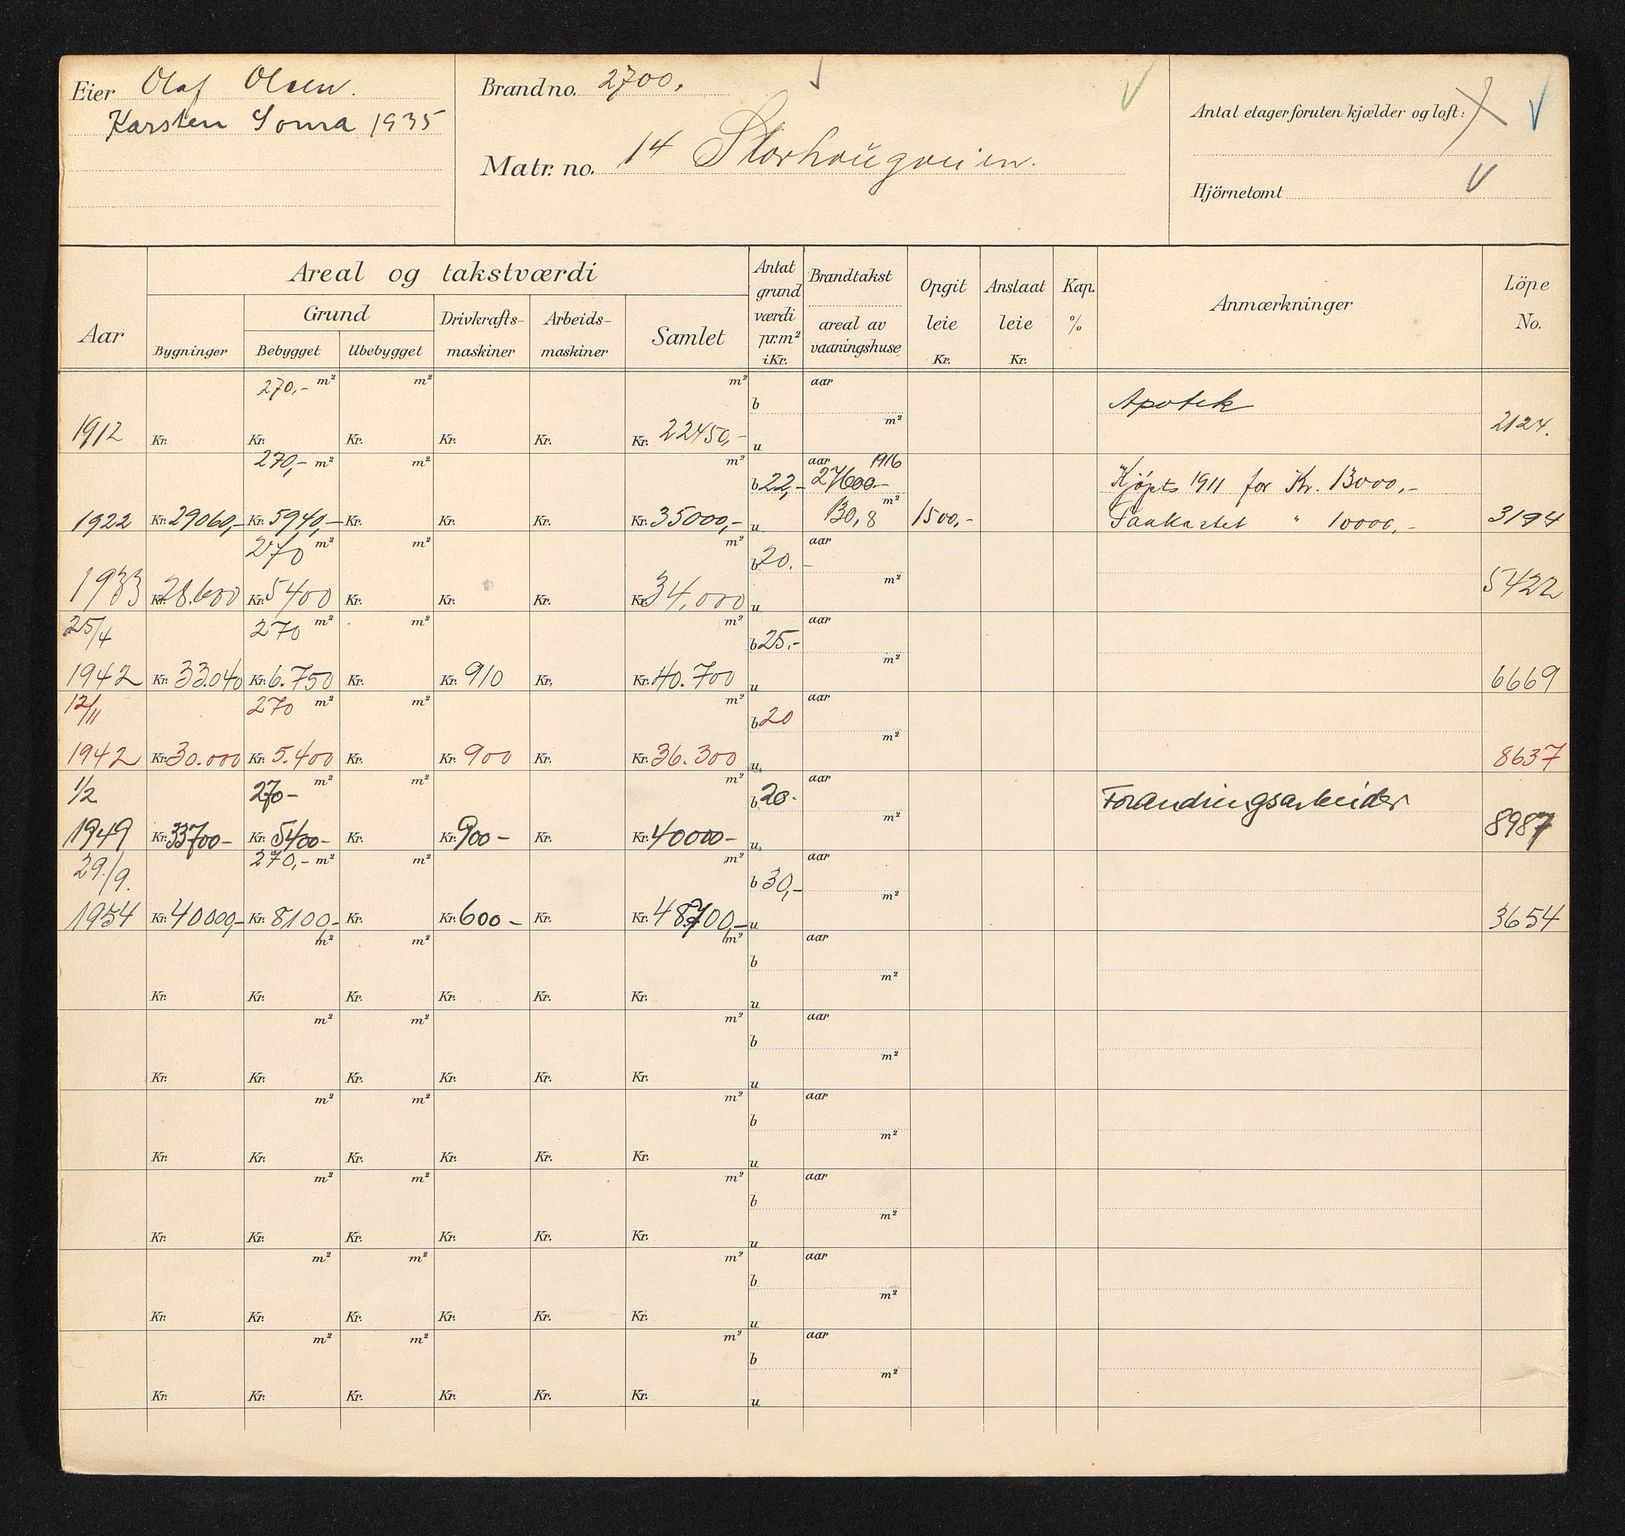 Eier Olaf Olsen.
Karsten Soma 1935
Brand no. 2700.
Matr. no. 14 Storhaugveien.
Antal etager foruten kjælder og loft:
Hjörnetomt
Aar
Areal og takstværdi
Bygninger
Grund
Bebygget Ubebygget
Drivkrafts-maskiner
Arbeids-maskiner
Samlet
Antat grundværdi pr. m² i Kr.
Brandtakst
areal av vaaningshuse
Opgit leie Kr.
Anslaat leie Kr.
Kap. %
Anmærkninger
Löpe No.
270,- m² m² m² aar
b Apotek
m²
1912 Kr. Kr. Kr. Kr. Kr. Kr. 22450,- u 2124.
270,- m² m² m² aar 1916
b 22,- 27600- Kjøpts 1911 for Kr. 13000,-
m²
1922 Kr. 29060,- Kr. 5940,- Kr. Kr. Kr. Kr. 35000,- u 130,8 1500,- Paakostet " 10000,- 3194
270 m² m² m² aar
b 20.-
m²
1933 Kr. 28.600 Kr. 5400 Kr. Kr. Kr. Kr. 34,000 u 5422
25/4 270 m² m² m² aar
b 25.-
m²
1942 Kr. 33.040 Kr. 6.750 Kr. Kr. 910 Kr. Kr. 40.700 u 6669
12/11 270 m² m² m² aar
b 20
m²
1942 Kr. 30.000 Kr. 5.400 Kr. Kr. 900 Kr. Kr. 36.300 u 8637
1/2 270- m² m² m² aar
b 20- Forandringsarbeider
m²
1949 Kr. 33700- Kr. 5400- Kr. Kr. 900- Kr. Kr. 40000- u 8987
29./9. 270,- m² m² m² aar
b 30,-
m²
1954 Kr. 40000,- Kr. 8100,- Kr. Kr. 600- Kr. Kr. 48700,- u 3654
m² m² m² aar
b
m²
Kr. Kr. Kr. Kr. Kr. Kr. u
m² m² m² aar
b
m²
Kr. Kr. Kr. Kr. Kr. Kr. u
m² m² m² aar
b
m²
Kr. Kr. Kr. Kr. Kr. Kr. u
m² m² m² aar
b
m²
Kr. Kr. Kr. Kr. Kr. Kr. u
m² m² m² aar
b
m²
Kr. Kr. Kr. Kr. Kr. Kr. u
m² m² m² aar
b
m²
Kr. Kr. Kr. Kr. Kr. Kr. u